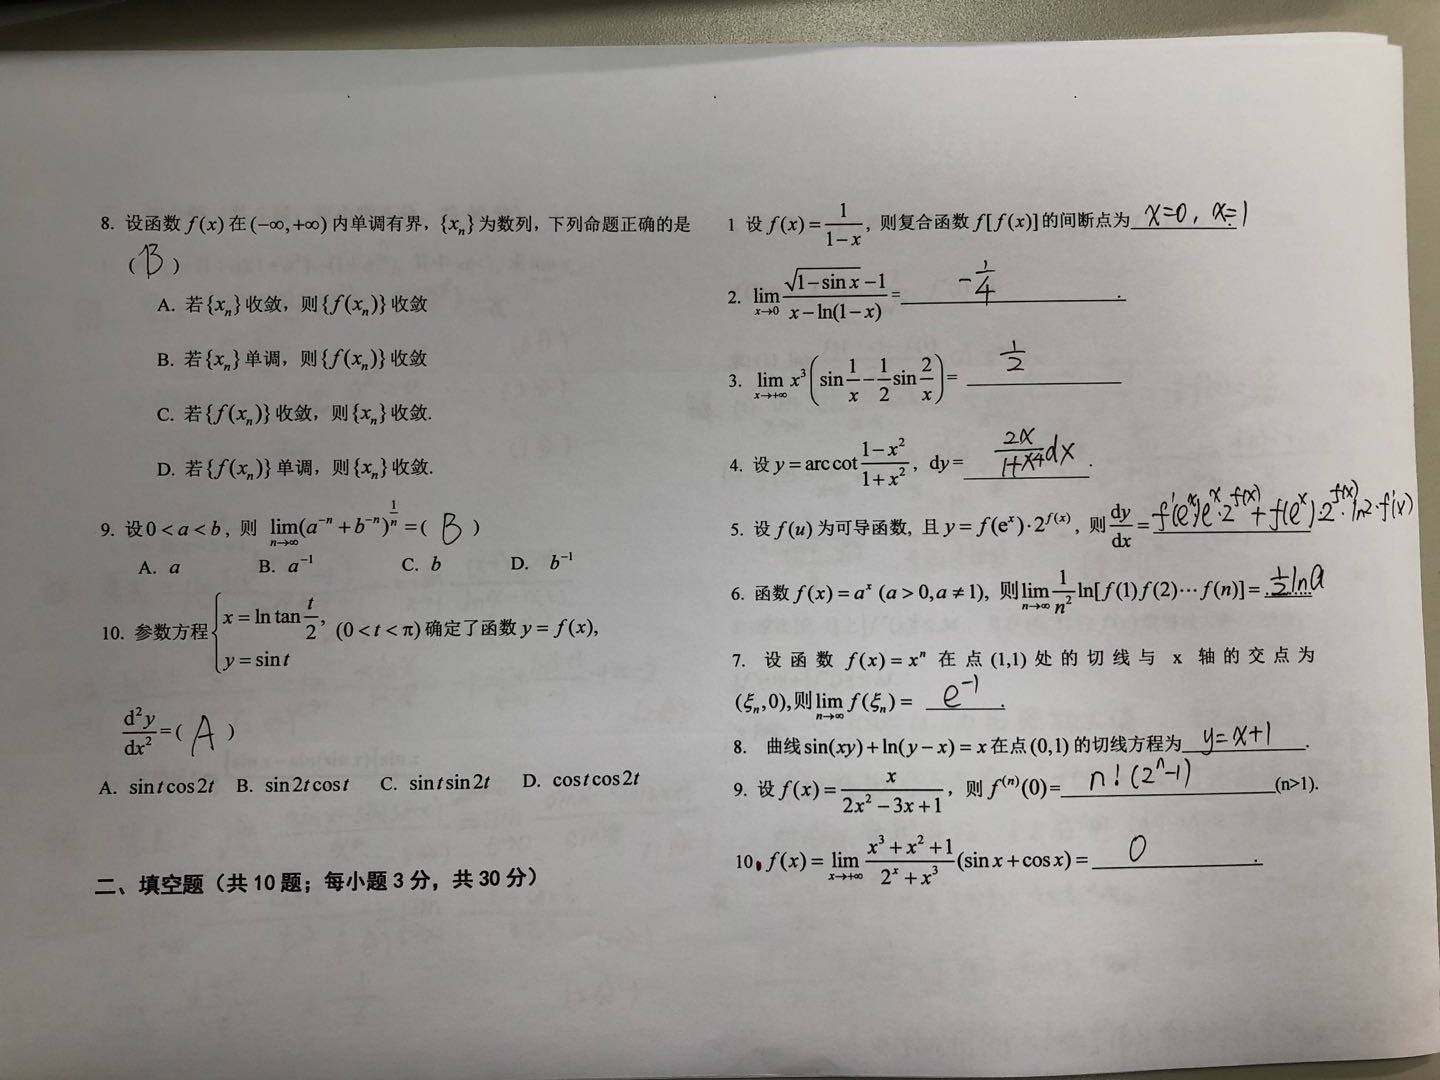 8. 设函数 f(x) 在 (−∞,+∞) 内单调有界，{xₙ} 为数列，下列命题正确的是
( B )
A. 若{xₙ}收敛，则{f(xₙ)}收敛
B. 若{xₙ}单调，则{f(xₙ)}收敛
C. 若{f(xₙ)}收敛，则{xₙ}收敛.
D. 若{f(xₙ)}单调，则{xₙ}收敛.
9. 设0<a<b，则 lim_{n→∞}(a⁻ⁿ+b⁻ⁿ)^{1/n} =( B )
A. a B. a⁻¹ C. b D. b⁻¹
10. 参数方程 { x = ln tan t/2, y = sin t (0<t<π) 确定了函数 y = f(x),
d²y/dx² =( A )
A. sin t cos 2t B. sin 2t cos t C. sin t sin 2t D. cos t cos 2t
二、填空题（共 10 题；每小题 3 分，共 30 分）
1 设 f(x) = 1/(1−x)，则复合函数 f[f(x)] 的间断点为 x=0, x=1.
2. lim_{x→0} (√(1−sin x) −1)/(x−ln(1−x)) = −1/4.
3. lim_{x→+∞} x³(sin 1/x − 1/2 sin 2/x) = 1/2
4. 设 y = arc cot (1−x²)/(1+x²)，dy = 2x/(1+x⁴) dx.
5. 设 f(u) 为可导函数, 且 y = f(eˣ)·2^{f(x)}，则 dy/dx = f'(eˣ)eˣ·2^{f(x)} + f(eˣ)·2^{f(x)}·ln2·f'(x)
6. 函数 f(x) = aˣ (a>0, a≠1)，则 lim_{n→∞} 1/n² ln[f(1)f(2)⋯f(n)] = 1/2 lna
7. 设函数 f(x) = xⁿ 在点 (1,1) 处的切线与 x 轴的交点为
(ξₙ,0),则 lim_{n→∞} f(ξₙ) = e⁻¹.
8. 曲线 sin(xy)+ln(y−x) = x 在点 (0,1) 的切线方程为 y=x+1.
9. 设 f(x) = x/(2x²−3x+1)，则 f⁽ⁿ⁾(0)= n!(2ⁿ−1) (n>1).
10. f(x) = lim_{x→+∞} (x³+x²+1)/(2ˣ+x³) (sin x+cos x) = 0.